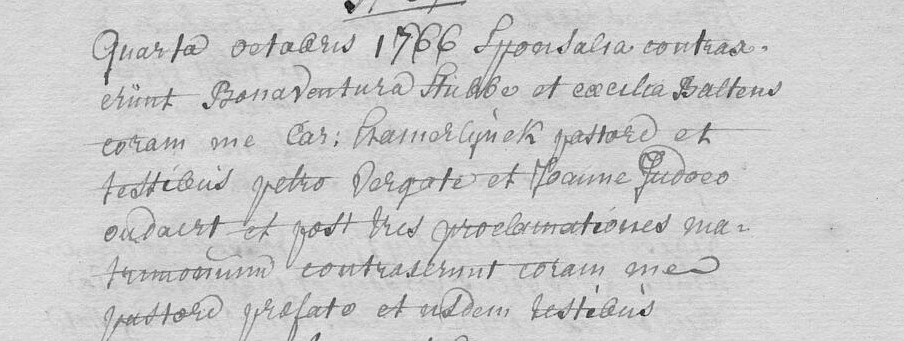 Quarta octobris 1766 Sponsalia contrax-
erünt Bonaventura Stubbe et cæcilia Baltens
coram me Car: Stamerlÿnck pastore et
testibüs petro Vergote et Joanne Judoco
oudaert et post tres proclamationes ma-
trimonium contraxerunt coram me
pastore præfato et iisdem testibüs